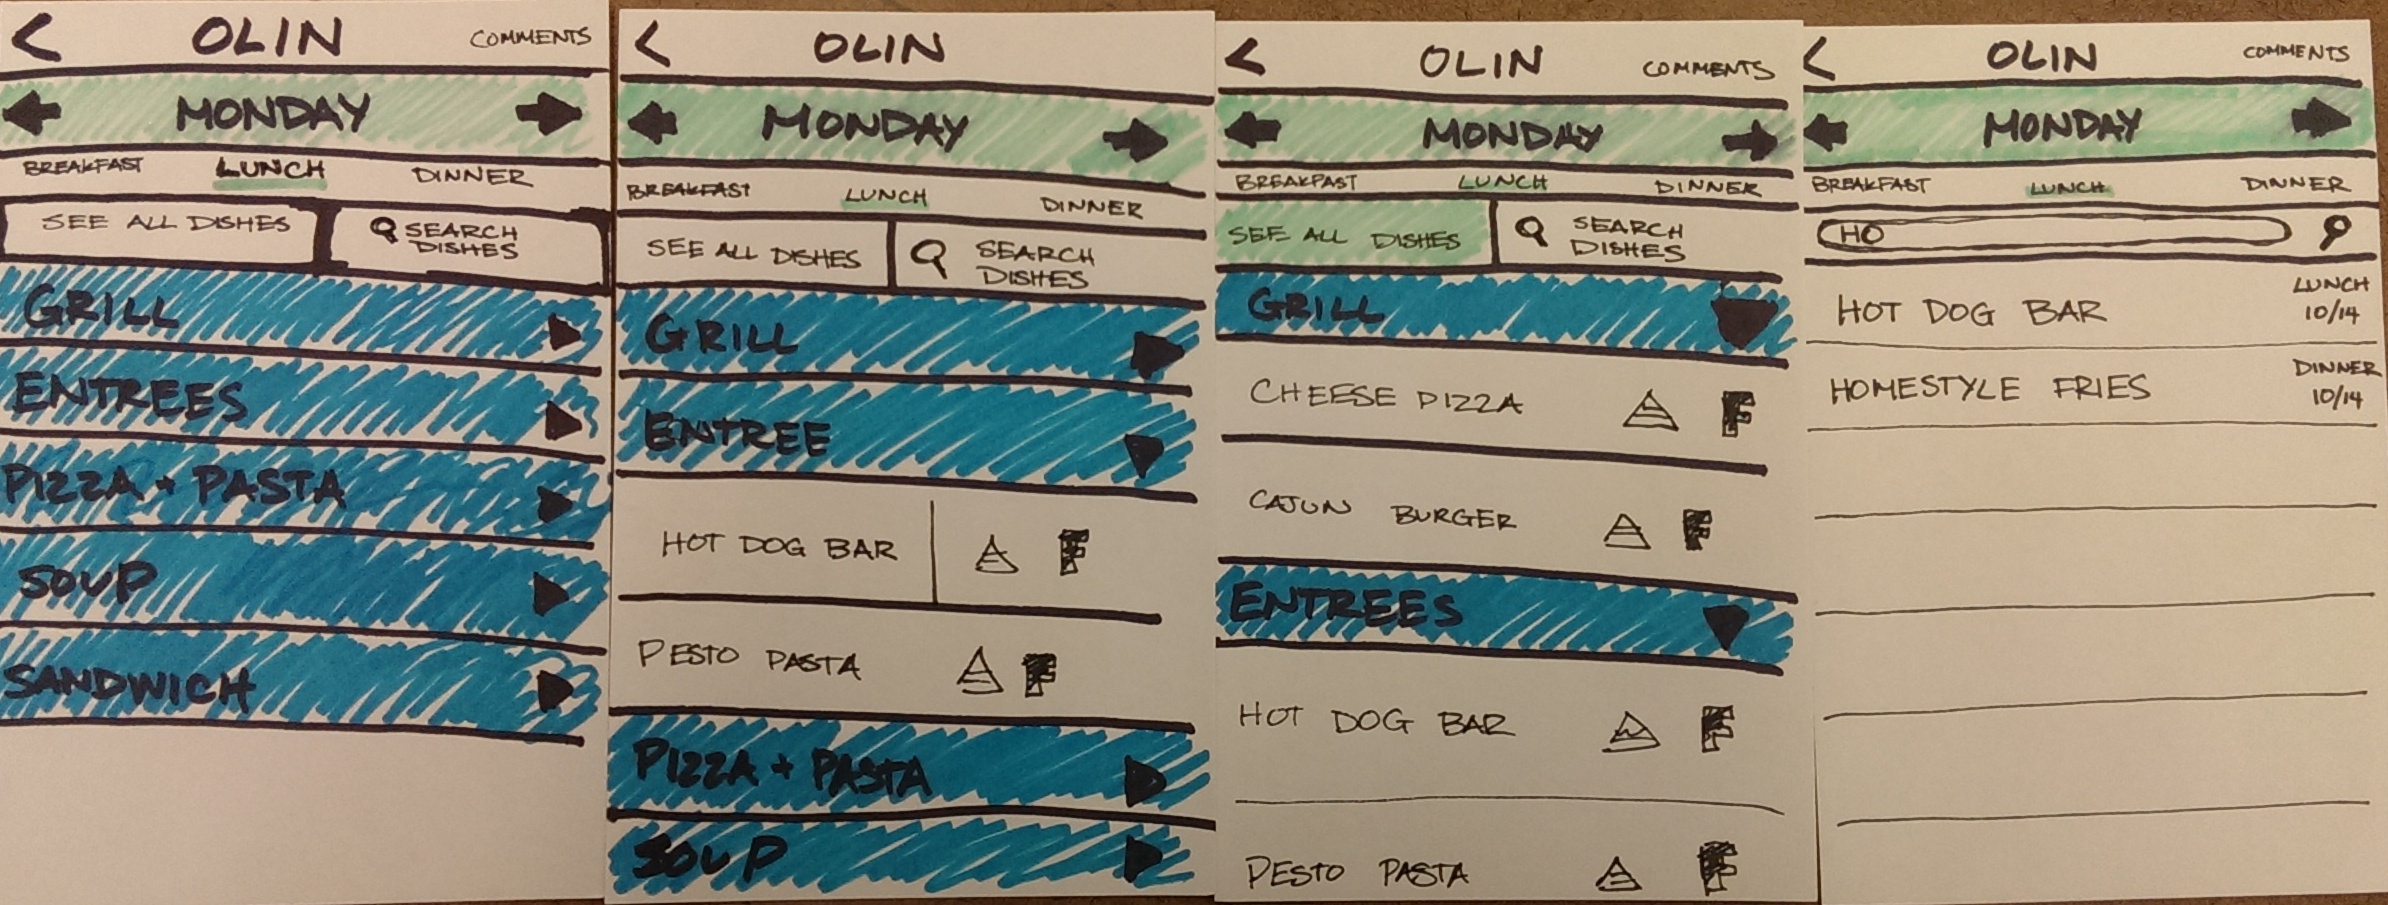 < OLIN COMMENTS
MONDAY
BREAKFAST LUNCH DINNER
SEE ALL DISHES SEARCH
DISHES
GRILL
ENTREES
PIZZA + PASTA
SOUP
SANDWICH
< OLIN
MONDAY
BREAKFAST LUNCH DINNER
SEE ALL DISHES SEARCH
DISHES
GRILL
ENTREE
HOT DOG BAR F
PESTO PASTA F
PIZZA + PASTA
SOUP
< OLIN COMMENTS
MONDAY
BREAKFAST LUNCH DINNER
SEE ALL DISHES SEARCH
DISHES
GRILL
CHEESE PIZZA F
CAJUN BURGER F
ENTREES
HOT DOG BAR F
PESTO PASTA F
< OLIN COMMENTS
MONDAY
BREAKFAST LUNCH DINNER
HO
HOT DOG BAR LUNCH
10/14
HOMESTYLE FRIES DINNER
10/14